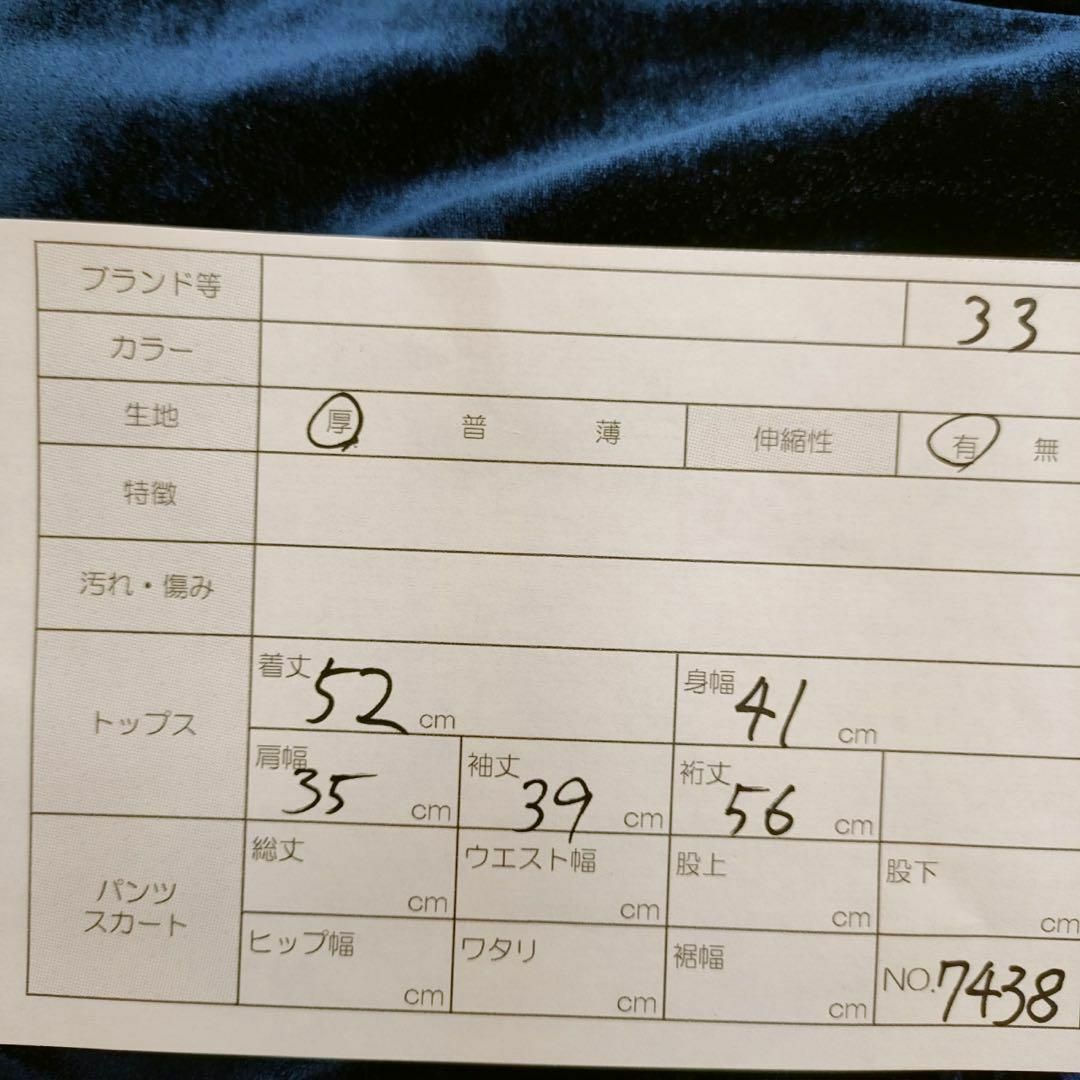 ブランド等 33
カラー
生地 厚 普 薄 伸縮性 有 無
特徴
汚れ・傷み
トップス 着丈 52 cm 身幅 41 cm
肩幅 35 cm 袖丈 39 cm 裄丈 56 cm
パンツ
スカート
総丈 cm ウエスト幅 cm 股上 cm 股下 cm
ヒップ幅 cm ワタリ cm 裾幅 cm NO.7438